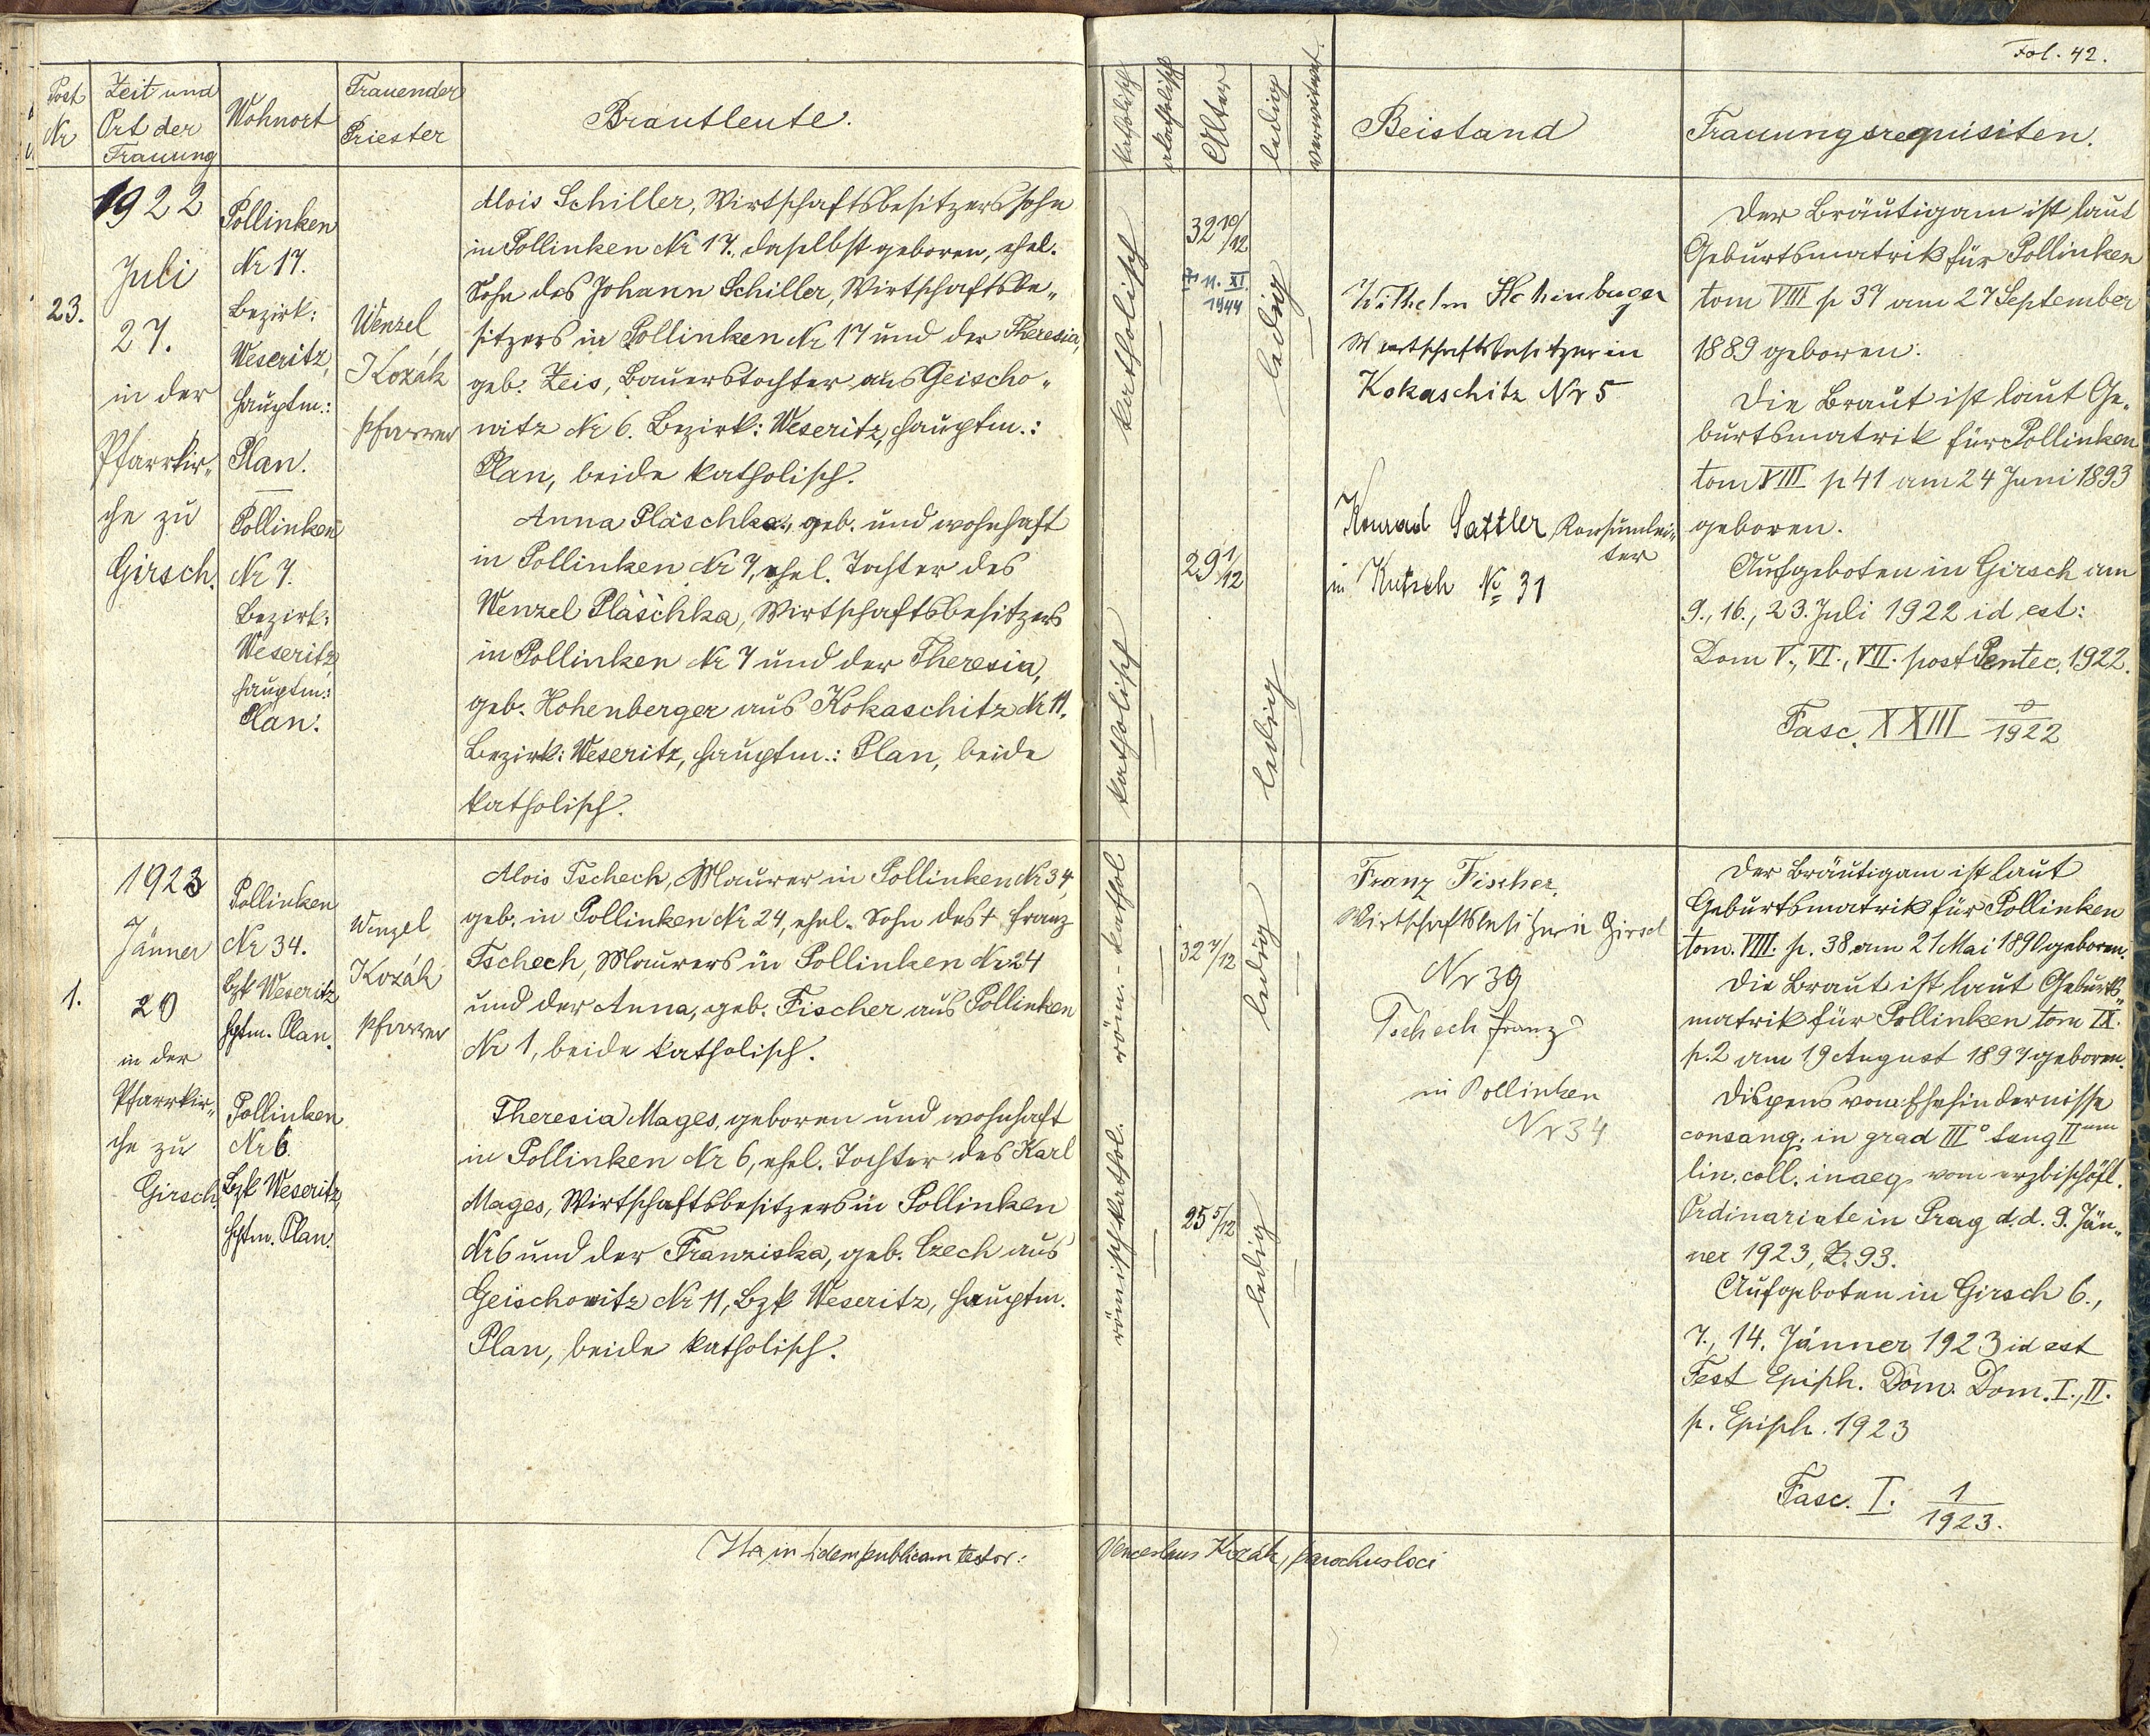 Fol. 42.
Post
Nr
Zeit und
Ort der
Trauung
Wohnort
Trauender
Priester
Brautleute.
katholisch
akatholisch
Alter
ledig
verwitwet.
Beistand
Trauungsrequisiten.
23.
1922
Juli
27.
in der
Pfarrkir„
che zu
Girsch.
Pollinken
Nr 17.
Bezirk:
Weseritz,
Hauptm.:
Plan.
Pollinken
Nr 7.
Bezirk:
Weseritz
Hauptm.:
Plan.
Wenzel
Kozák
Pfarrer
Alois Schiller, Wirtschaftsbesitzerssohn
in Pollinken Nr 17. daselbst geboren, ehel.
Sohn des Johann Schiller, Wirtschaftsbe„
sitzers in Pollinken Nr 17 und der Theresia,
geb. Zeis, Bauerstochter aus Geischo„
witz Nr 6. Bezirk: Weseritz, Hauptm.:
Plan, beide katholisch.
Anna Pläschka, geb. und wohnhaft
in Pollinken Nr 7, ehel. Tochter des
Wenzel Pläschka, Wirtschaftsbesitzers
in Pollinken Nr 7 und der Theresia,
geb. Hohenberger aus Kokaschitz Nr 11.
Bezirk: Weseritz, Hauptm.: Plan, beide
katholisch.
katholisch
32 10/12
+ 11. XI.
1944
ledig
katholisch
29 1/12
ledig
Wilhelm
Wirtschaftsbesitzer in
Kokaschitz Nr 5
Konrad Sattler Konsumlei„
ter
in Kutsch No 31
Der Bräutigam ist laut
Geburtsmatrik für Pollinken
tom VIII p 37 am 27 September
1889 geboren.
Die Braut ist laut Ge„
burtsmatrik für Pollinken
tom VIII p 41 am 24 Juni 1893
geboren.
Aufgeboten in Girsch am
9., 16., 23. Juli 1922 id est:
Dom V., VI., VII. post Pentec. 1922.
Fasc. XXIII 1922
1.
1923
Jänner
20
in der
Pfarrkir„
che zu
Girsch.
Pollinken
Nr 34.
Bzk Weseritz
Hptm. Plan.
Pollinken
Nr 6.
Bzk Weseritz,
Hptm. Plan.
Wenzel
Kozák
Pfarrer
Alois Tschech, Maurer in Pollinken Nr 34,
geb. in Pollinken Nr 24, ehel. Sohn des + Franz
Tschech, Maurers in Pollinken Nr 24
und der Anna, geb. Fischer aus Pollinken
Nr 1, beide katholisch.
Theresia Mages, geboren und wohnhaft
in Pollinken Nr 6, ehel. Tochter des Karl
Mages, Wirtschaftsbesitzers in Pollinken
Nr 6 und der Franziska, geb. Czech aus
Geischowitz Nr 11, Bzk Weseritz, Hauptm.
Plan, beide katholisch.
röm.-kathol
32 7/12
ledig
römisch kathol.
25 5/12
ledig
Franz Fischer,
Wirtschaftsbesitzer in Girsch
Nr 39
Tschech Franz
in Pollinken
Nr 34
Der Bräutigam ist laut
Geburtsmatrik für Pollinken
tom. VIII. p. 38 am 21 Mai 1890 geboren.
Die Braut ist laut Geburts„
matrik für Pollinken tom IX.
p. 2 am 19 August 1897 geboren.
Dispens vom Ehehindernisse
consang. in grad III° tang II um
lin. coll. inaeq. vom erzbischöfl.
Ordinariate in Prag d. d. 9. Jän„
ner 1923, Z. 93.
Aufgeboten in Girsch 6.,
7., 14. Jänner 1923 id est
Fest Epiph. Dom. Dom. I., II.
p. Epiph. 1923
Fasc. I. 1
1923.
Ita in fidem publicam testor: Venceslaus Kozák, parochus loci